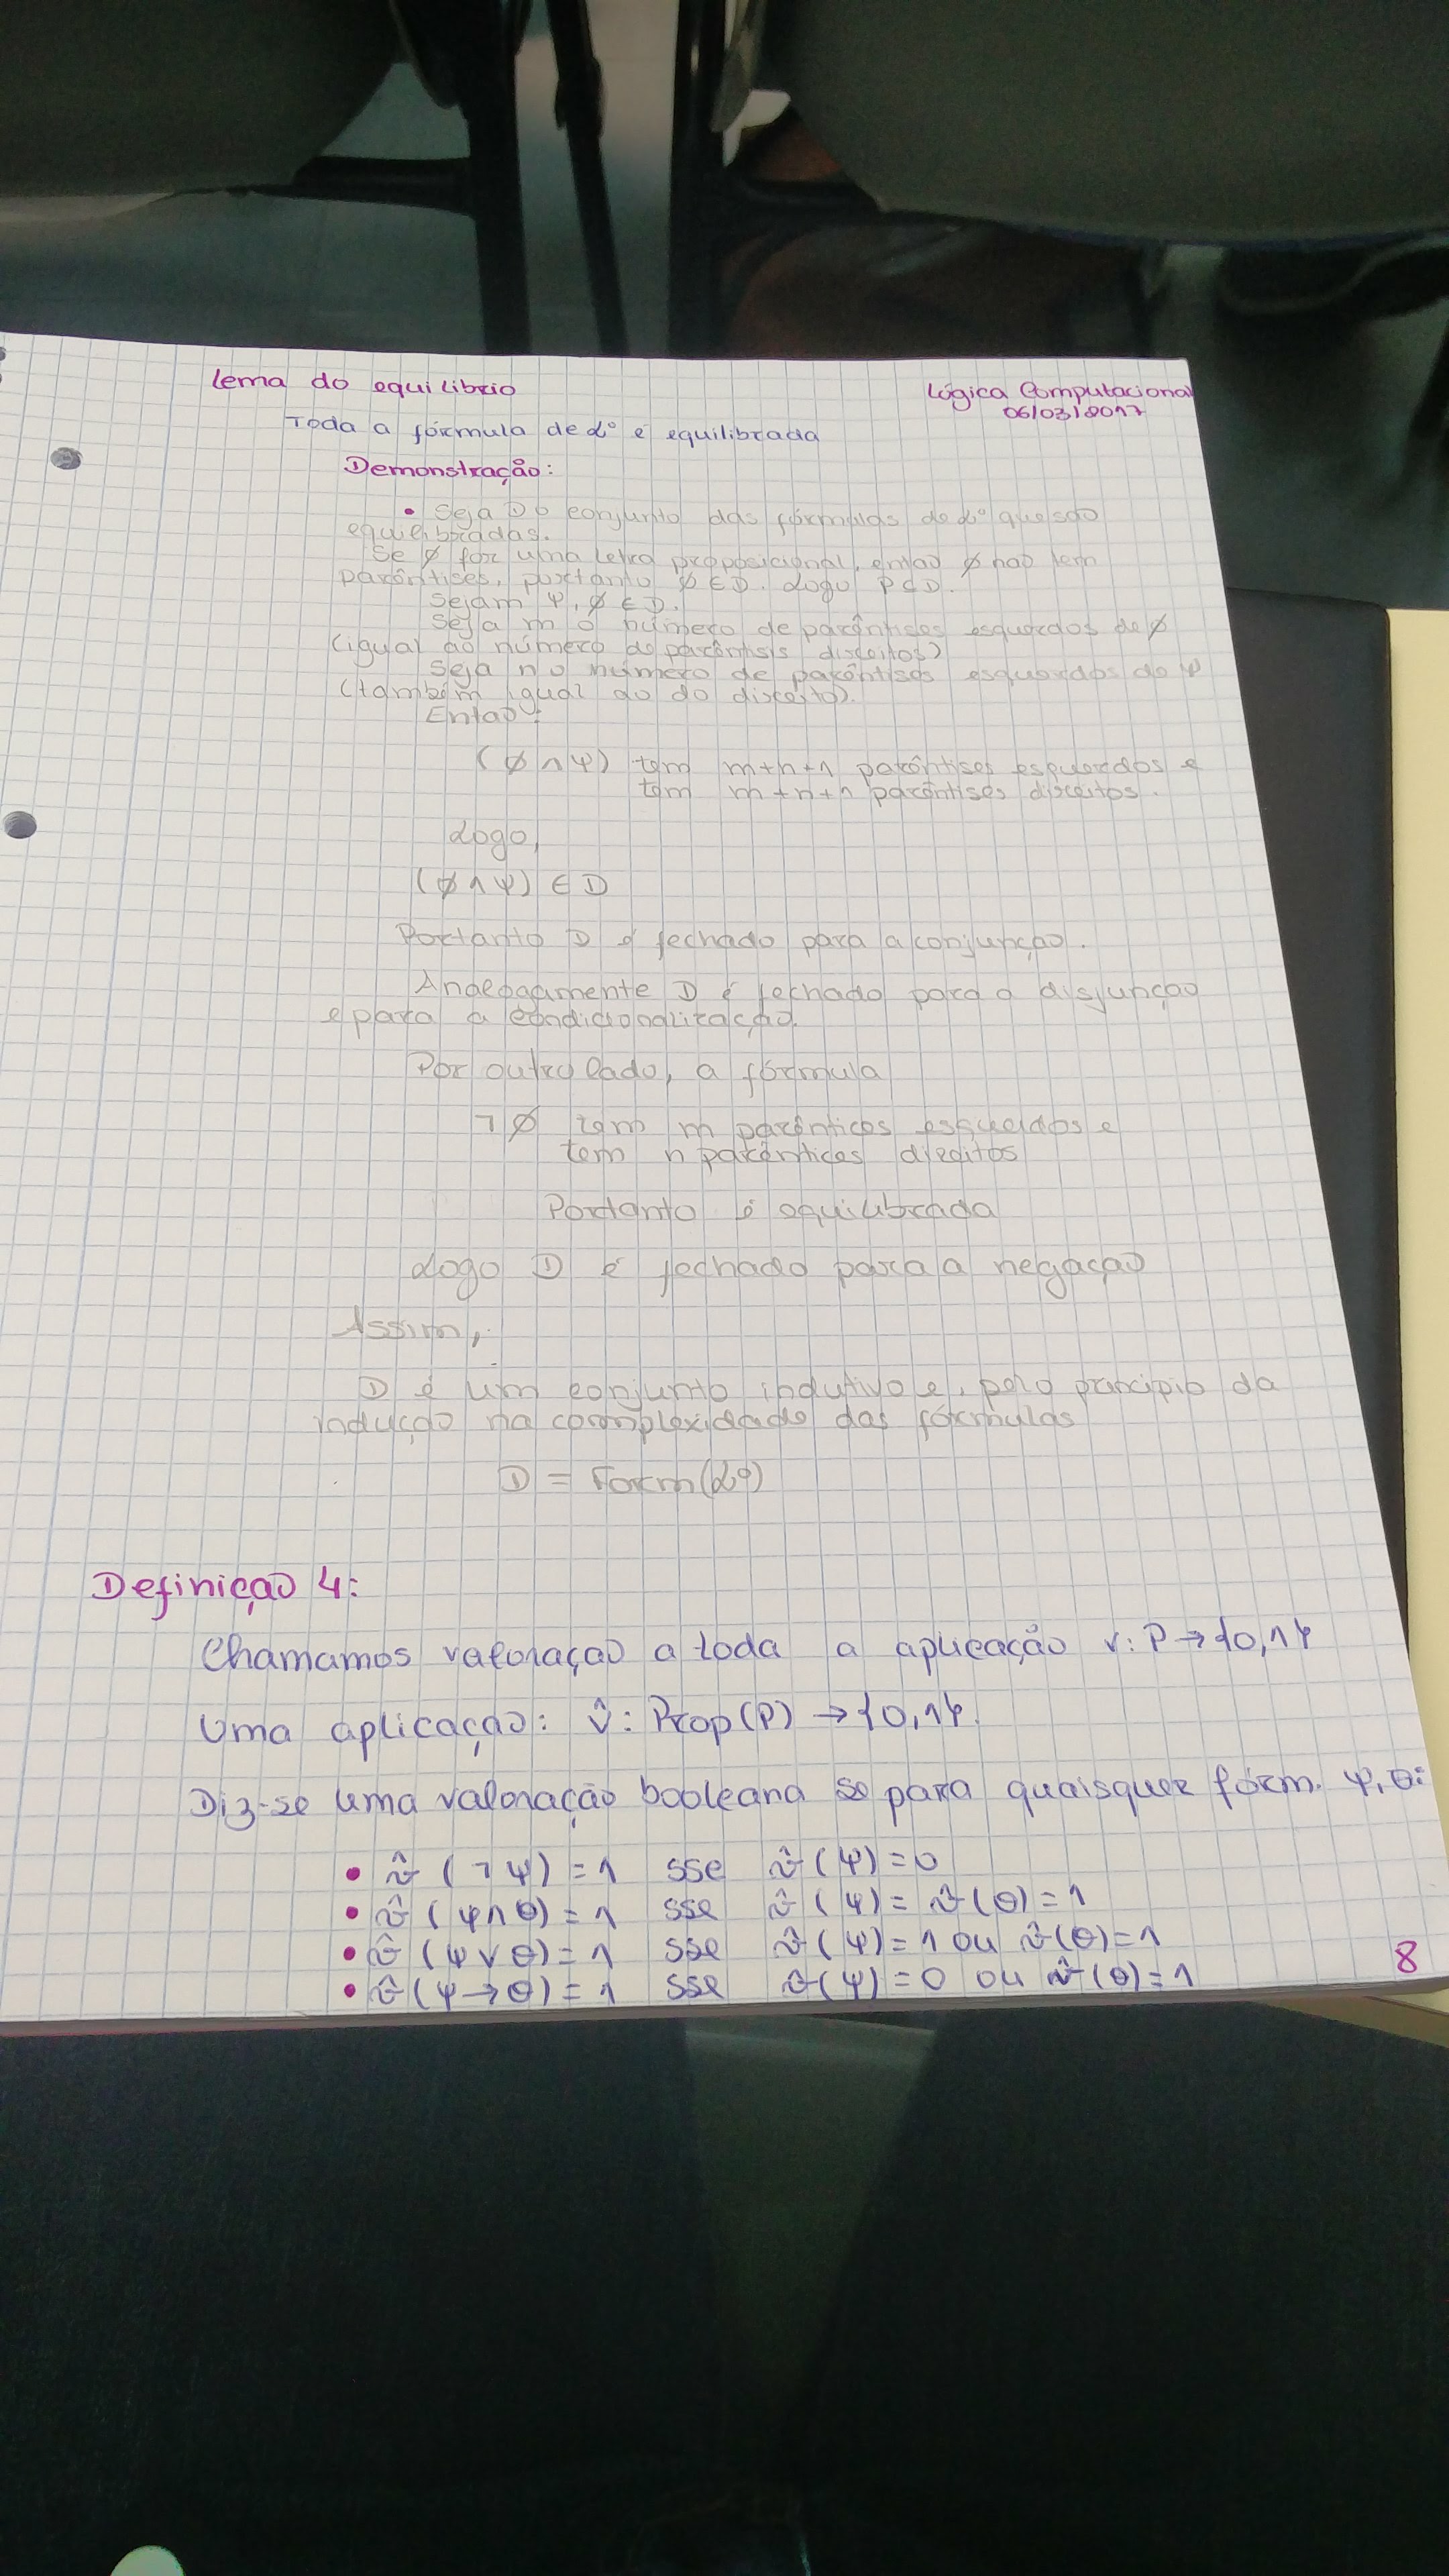 Lema do equilibrio
Lógica Computacional
06/03/2017
Toda a fórmula de L° é equilibrada
Demonstração:
• Seja D o conjunto das fórmulas de L° que são
equilibradas.
Se ø for uma letra proposicional, então ø não tem
parêntises, portanto ø ∈ D. Logo P ⊂ D.
Sejam ψ, ø ∈ D.
Seja m o número de parêntises esquerdos de ø
(igual ao número de parêntisis direitos)
Seja n o número de parêntises esquerdos de ψ
(também igual ao do direito).
Então:
(ø ∧ ψ) tem m+n+1 parêntises esquerdos e
tem m+n+1 parêntises direitos.
Logo,
(ø ∧ ψ) ∈ D
Portanto D é fechado para a conjunção.
Analogamente D é fechado para a disjunção
e para a condicionalização.
Por outro lado, a fórmula
¬ø tem m parêntices esquerdos e
tem n parêntices direitos
Portanto é equilibrada
Logo D é fechado para a negação
Assim,
D é um conjunto indutivo e, pelo principio da
indução na complexidade das fórmulas
D = Form(L°)
Definição 4:
Chamamos valoração a toda a aplicação v: P → {0,1}
Uma aplicação: v̂: Prop(P) → {0,1}.
Diz-se uma valoração booleana se para quaisquer fórm. ψ, θ:
• v̂ (¬ψ) = 1 sse v̂ (ψ) = 0
• v̂ (ψ∧θ) = 1 sse v̂ (ψ) = v̂ (θ) = 1
• v̂ (ψ∨θ) = 1 sse v̂ (ψ) = 1 ou v̂ (θ) = 1
• v̂ (ψ→θ) = 1 sse v̂ (ψ) = 0 ou v̂ (θ) = 1
8